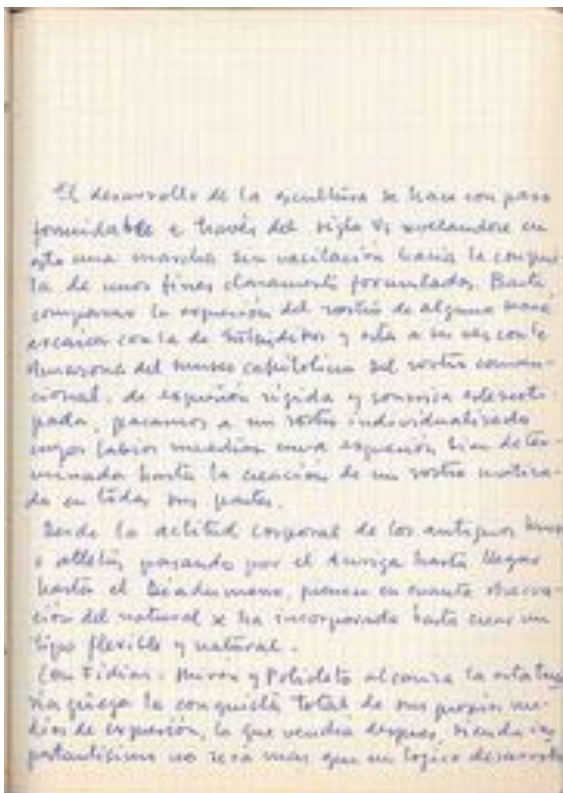 El desarrollo de la escultura se hace con paso
formidable a través del siglo V, revelandose en
esto una marcha sin vacilación hacia la conquis-
ta de unos fines claramente formulados. Basta
comparar la expresión del rostro de alguna
arcaica con la de y esta a su vez con la
Amazona del museo capitolino del rostro conven-
cional, de expresión rígida y sonrisa estereoti-
pada, pasamos a un rostro individualizado
cuyos labios una expresión bien deter-
minada hasta la creación de un rostro
do en todas sus partes.
Desde la actitud corporal de los antiguos
o atletas pasando por el Auriga hasta llegar
hasta el Diadumeno, en cuanta observa-
ción del natural se ha incorporado hasta crear un
tipo flexible y natural.
Con Fidias, Mirón y Policleto alcanza la estatua-
ria griega la conquista total de sus propios me-
dios de expresión, lo que vendra despues, siendo im-
portantisimo no sera mas que un logico desarrollo